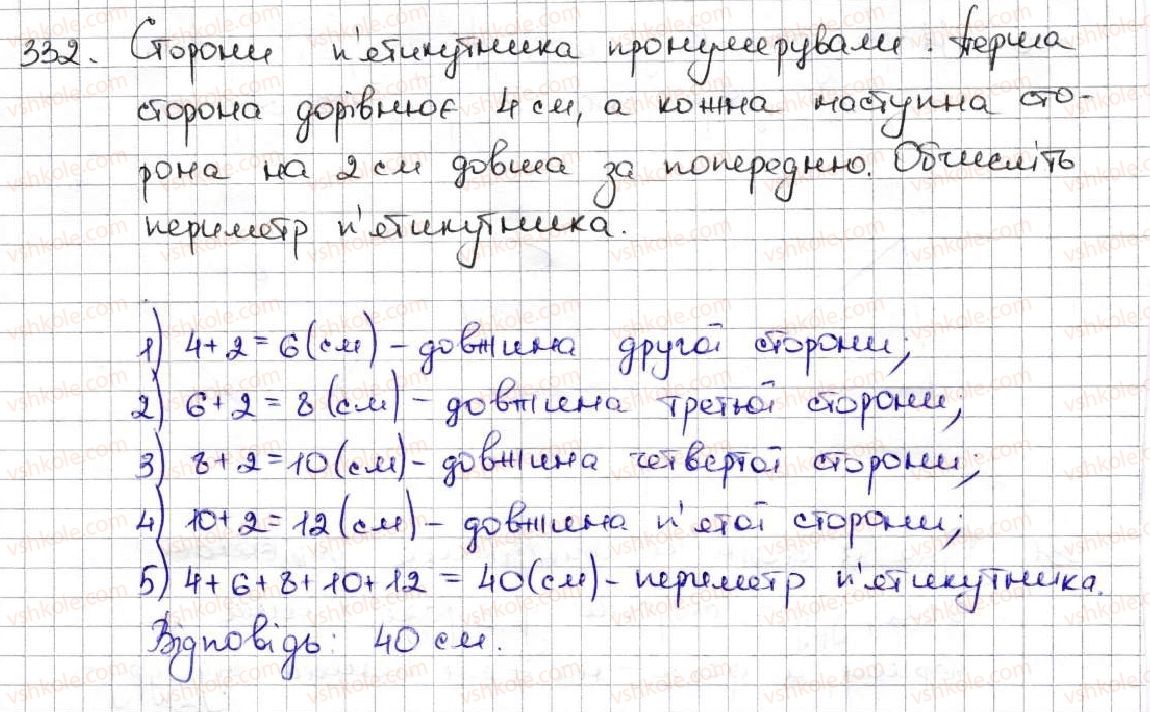 332. Сторони п'ятикутника пронумерували. Перша
сторона дорівнює 4 см, а кожна наступна сто-
рона на 2 см довша за попередню. Обчисліть
периметр п'ятикутника.
1) 4+2=6(см) – довжина другої сторони;
2) 6+2=8(см) – довжина третьої сторони;
3) 8+2=10(см) – довжина четвертої сторони;
4) 10+2=12(см) – довжина п'ятої сторони;
5) 4+6+8+10+12=40(см) – периметр п'ятикутника.
Відповідь: 40 см.